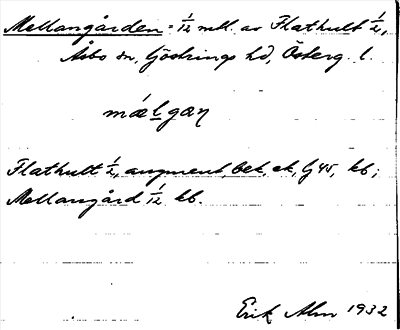 Mellangården = 1/12 mtl. av Flathult 1/2,
Åsbo sn, Göstrings hd, Österg. l.
mǽlgaɳ
Flathult 1/2, augment, bek, ek, Lj 45, kb;
Mellangård 1/12 kb.
Erik Alm 1932